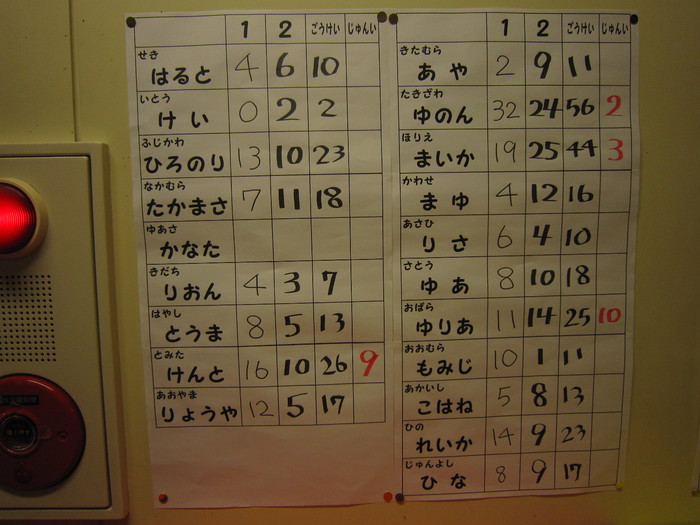 1 2 ごうけい じゅんい
せき
はると 4 6 10
いとう
けい 0 2 2
ふじかわ
ひろのり 13 10 23
なかむら
たかまさ 7 11 18
ゆあさ
かなた
きだち
りおん 4 3 7
はやし
とうま 8 5 13
とみた
けんと 16 10 26 9
あおやま
りょうや 12 5 17
1 2 ごうけい じゅんい
きたむら
あや 2 9 11
たきざわ
ゆのん 32 24 56 2
ほりえ
まいか 19 25 44 3
かわせ
まゆ 4 12 16
あさひ
りさ 6 4 10
さとう
ゆあ 8 10 18
おばら
ゆりあ 11 14 25 10
おおむら
もみじ 10 1 11
あかいし
こはね 5 8 13
ひの
れいか 14 9 23
じゅんよし
ひな 8 9 17